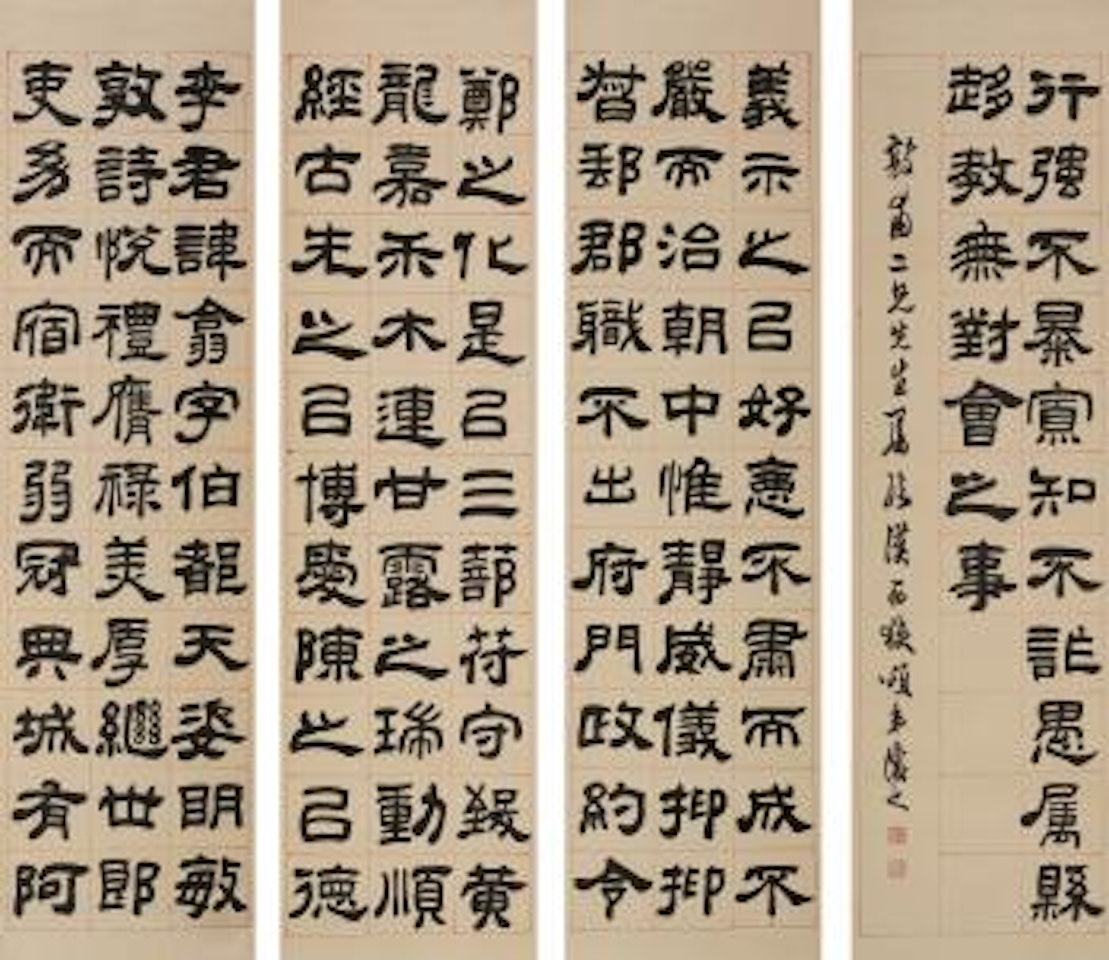 李君諱翕字伯都天姿明敏
敦詩悅禮膺祿美厚繼世郎
吏幼而宿衛弱冠典城有阿
鄭之化是㠯三剖符守致黃
龍嘉禾木連甘露之瑞動順
經古先之㠯博愛陳之㠯德
義示之㠯好惡不肅而成不
嚴而治朝中惟靜威儀抑抑
督郵郡職不出府門政約令
行強不暴寡知不詐愚屬縣
趍教無對會之事
敦甫二兄先生屬臨漢西狹頌弟